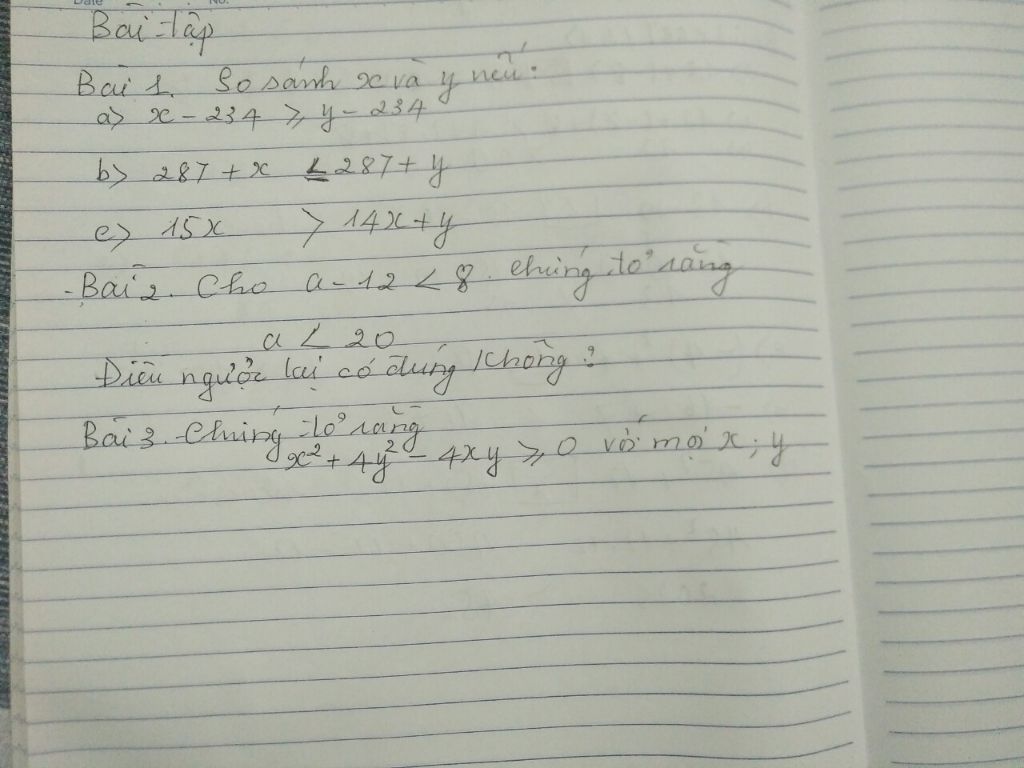 Date No.
Bài tập
Bài 1. So sánh x và y nếu:
a> x - 234 ⩾ y - 234
b> 287 + x ≤ 287 + y
c> 15x > 14x + y
- Bài 2. Cho a - 12 < 8. Chứng tỏ rằng
a < 20
Điều ngược lại có đúng không?
Bài 3. Chứng tỏ rằng
x² + 4y² - 4xy ⩾ 0 với mọi x; y